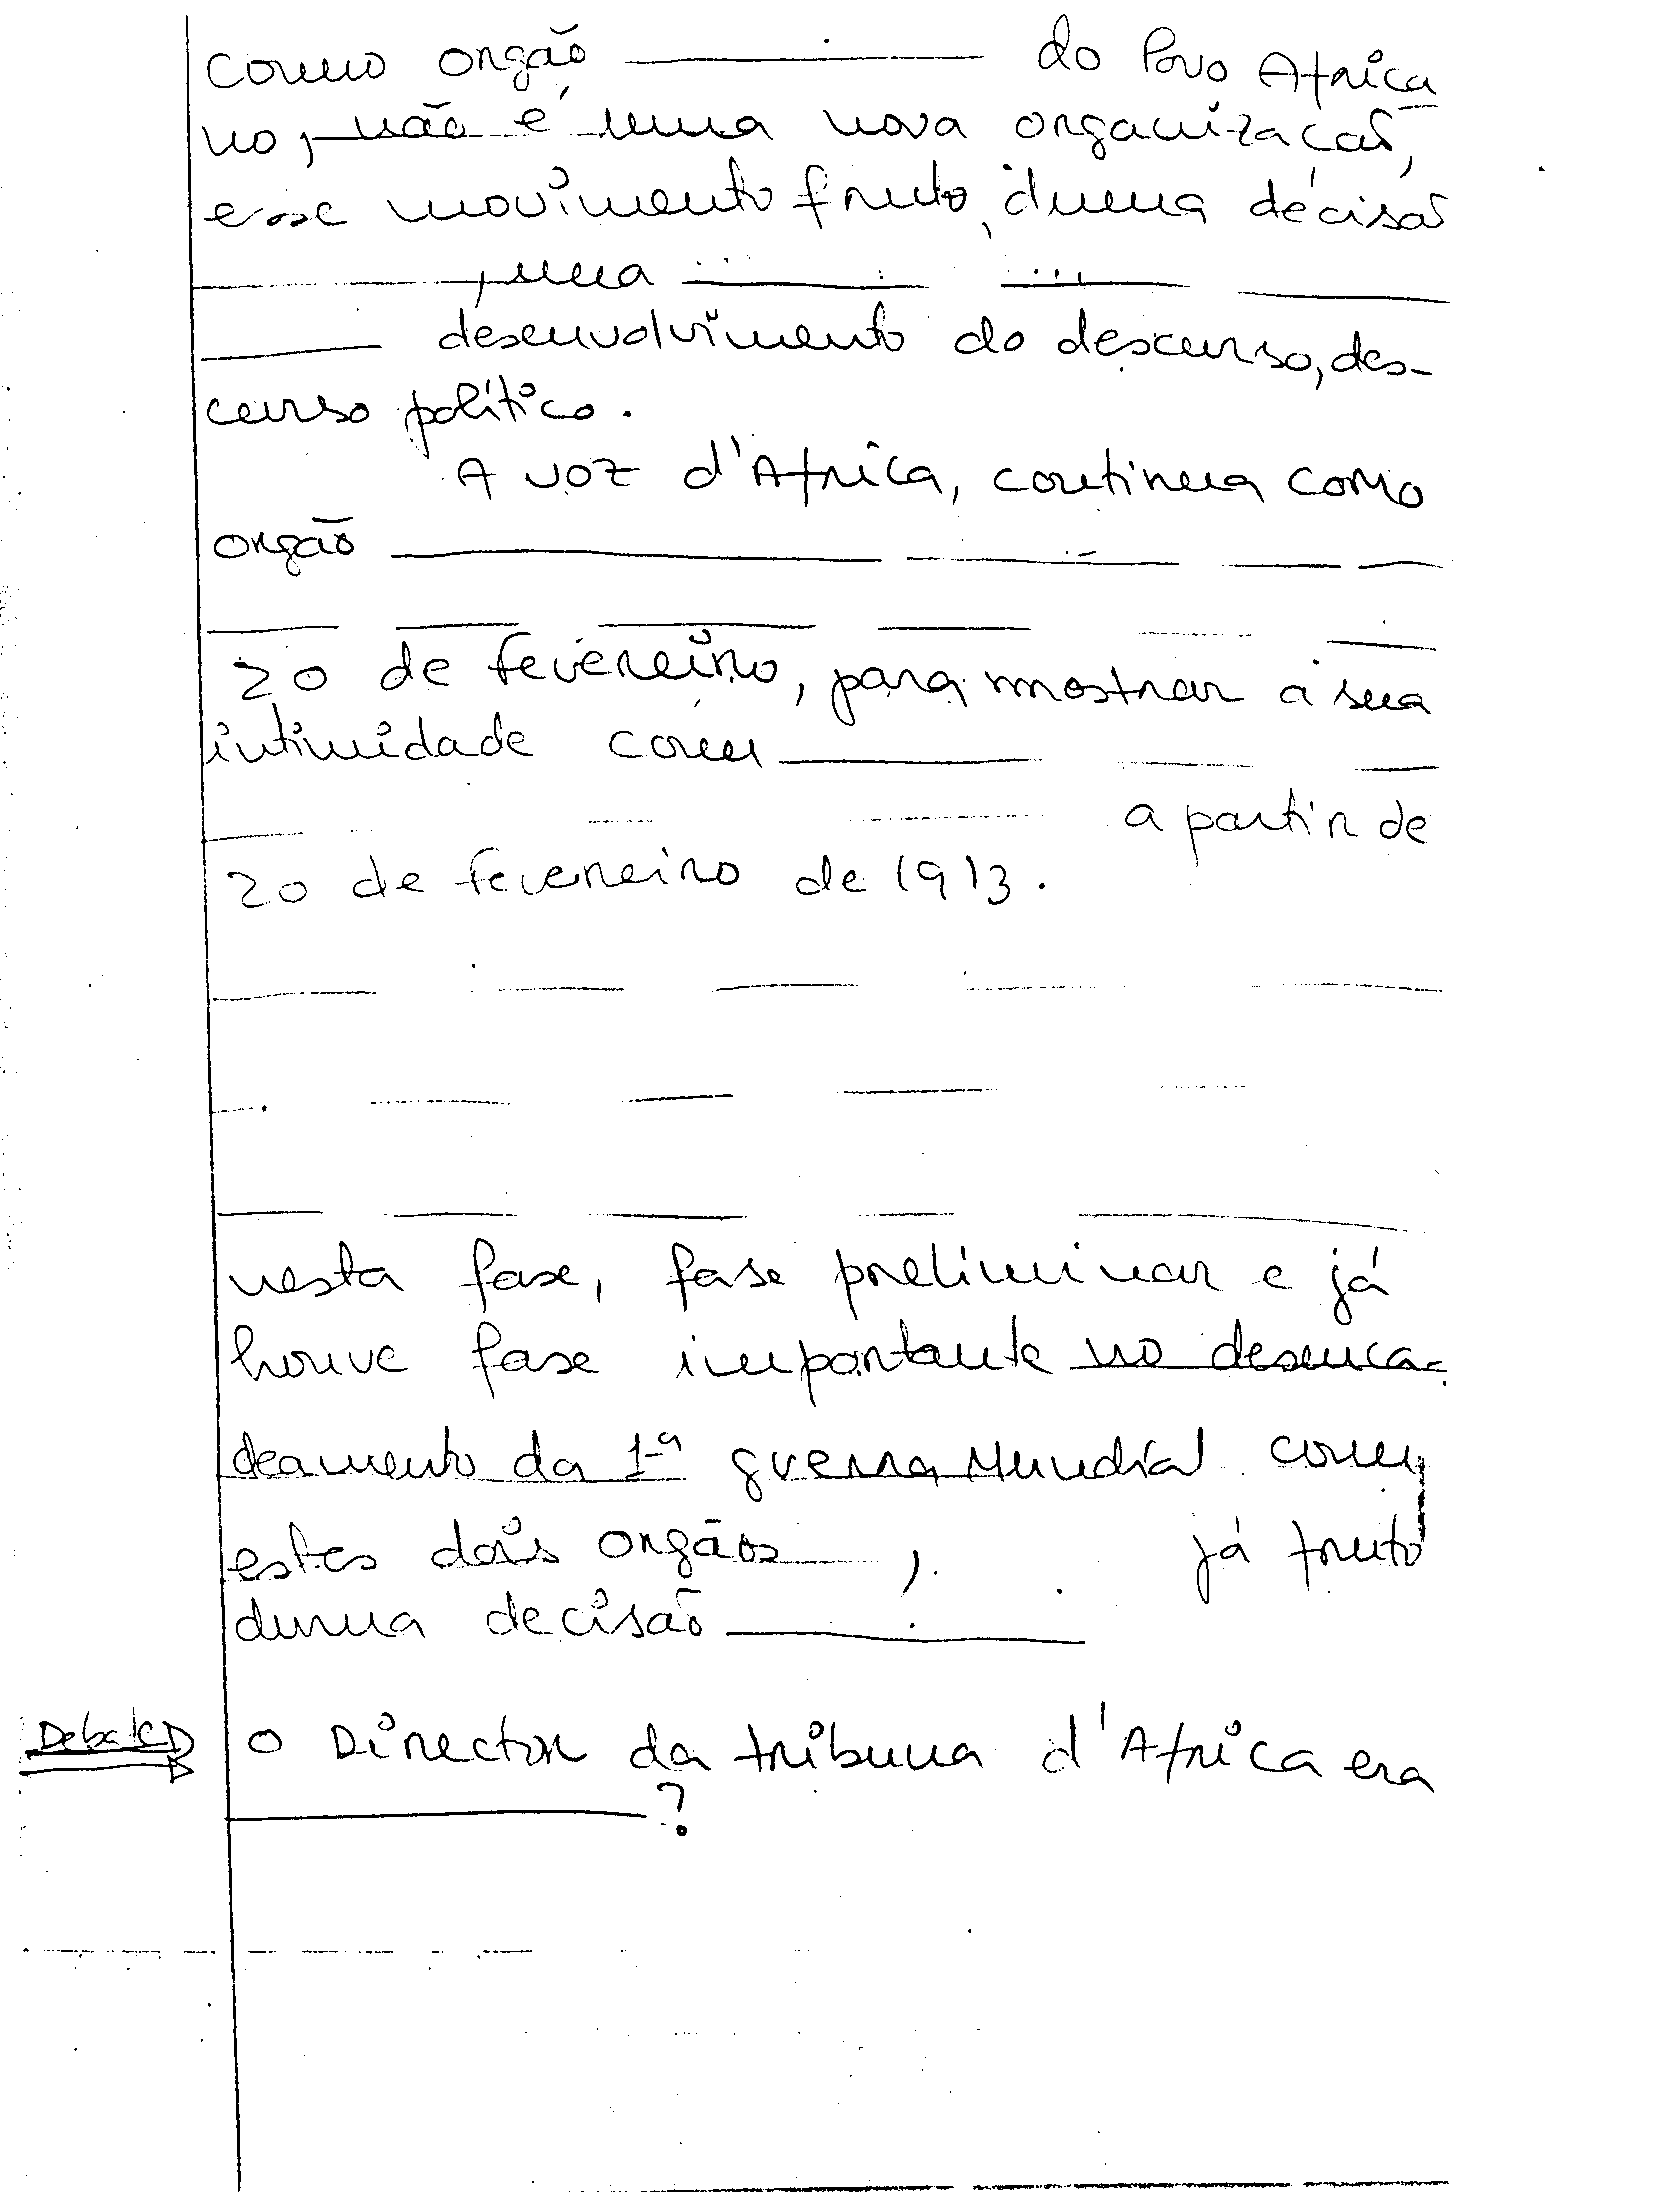 como orgão ________ do Povo Africa
no, não é uma nova organização,
esse movimento fruto, duma décisão
________, uma ________ ________ ________
________ desenvolvimento do descurso, des-
curso político.
A voz d'Africa, continua como
orgão ________ ________ ________ ________
20 de fevereiro, para mostrar a sua
intimidade com ________ ________ ________
________ a partir de
20 de fevereiro de 1913.
nesta fase, fase preliminar e já
houve fase importante no desenca-
deamento da 1ª guerra Mundial com
estes dois orgãos ____, já fruto
duma decisão ________
Debate O Director da tribuna d'Africa era
________?